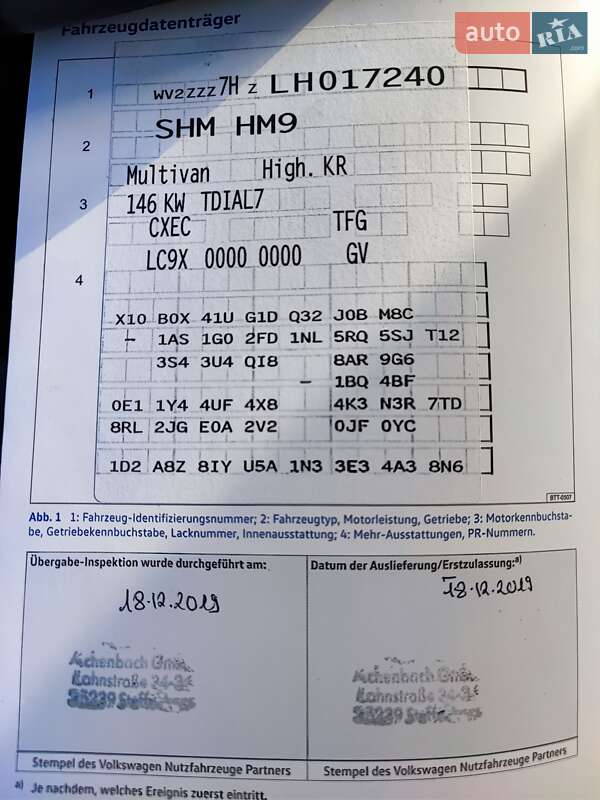 Fahrzeugdatenträger
auto RIA .com
1 WV2ZZZ7HZ LH017240
SHM HM9
2
Multivan High. KR
3 146 KW TDIAL7
CXEC TFG
LC9X 0000 0000 GV
4
X10 B0X 41U G1D Q32 J0B M8C
– 1AS 1G0 2FD 1NL 5RQ 5SJ T12
3S4 3U4 QI8 8AR 9G6
– 1BQ 4BF
0E1 1Y4 4UF 4X8 4K3 N3R 7TD
8RL 2JG E0A 2V2 0JF 0YC
1D2 A8Z 8IY U5A 1N3 3E3 4A3 8N6
BTT-0507
Abb. 1 1: Fahrzeug-Identifizierungsnummer; 2: Fahrzeugtyp, Motorleistung, Getriebe; 3: Motorkennbuchsta-
be, Getriebekennbuchstabe, Lacknummer, Innenausstattung; 4: Mehr-Ausstattungen, PR-Nummern.
Übergabe-Inspektion wurde durchgeführt am:
Datum der Auslieferung/Erstzulassung:a)
18.12.2019
18.12.2019
Achenbach GmbH
Achenbach GmbH
Stempel des Volkswagen Nutzfahrzeuge Partners
Stempel des Volkswagen Nutzfahrzeuge Partners
a) Je nachdem, welches Ereignis zuerst eintritt.